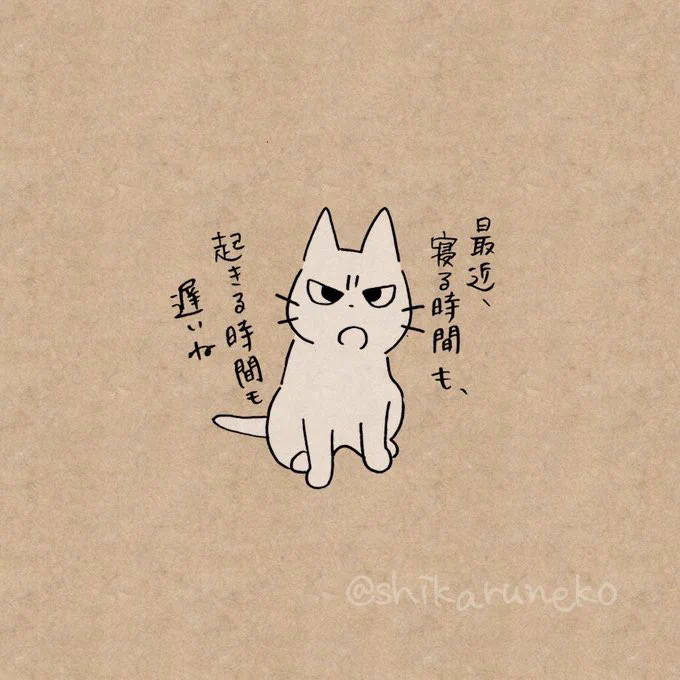 最近、
寝る時間も、
起きる時間も
遅いね
@shikaruneko